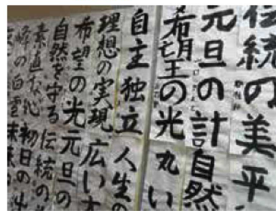 伝統の美 平
元旦の計 自然
希望の光 丸い
自主独立 人生の
理想の実現 広い
希望の光 元旦の
自然を守る 伝統の
素直な心 初日の出